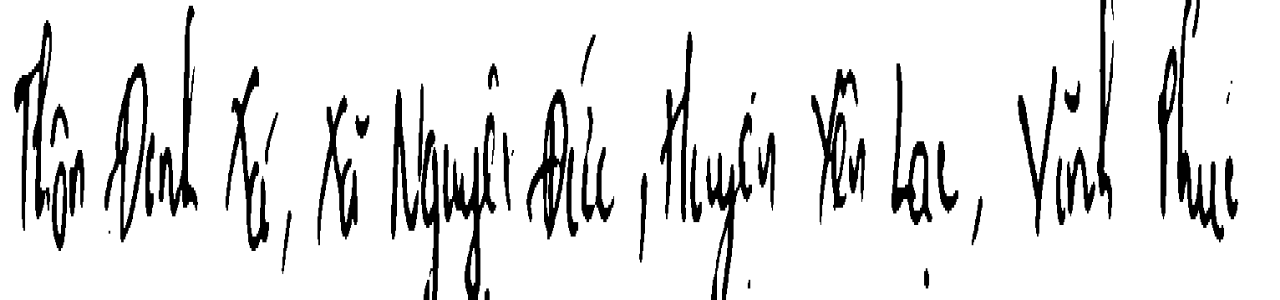 Thôn Đinh Xá, Xã Nguyệt Đức, Huyện Yên Lạc, Vĩnh Phúc